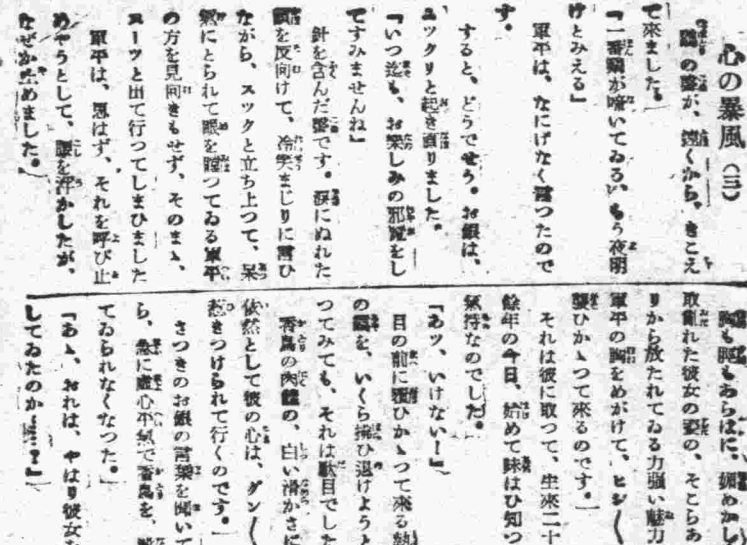 心の暴風（三）
鷄の聲が、遠くから、きこえ
て來ました。
「一番鷄が啼いてゐる、もう夜明
けとみえる」
軍平は、なにげなく言つたので
す。
すると、どうでせう。お銀は、
ユツクリと起き直りました。
「いつ迄も、お樂しみの邪魔をし
てすみませんね」
針を含んだ聲です。涙にぬれた
顏を反向けて、冷笑まじりに言ひ
ながら、スツクと立ち上つて、呆
氣にとられて眼を瞠つてゐる軍平
の方を見向きもせず、そのまゝ、
スーツと出て行つてしまひました
軍平は、思はず、それを呼び止
めやうとして、腰を浮かしたが、
なぜか止めました。
胸も脚もあらはに、媚めかし
取亂れた彼女の姿の、そこらあ
りから放たれてゐる力强い魅力
軍平の胸をめがけて、ヒシ〱
襲ひかゝつて來るのです。
それは彼に取つて、生來二十
餘年の今日、始めて味はひ知つ
氣持なのでした。
「あツ、いけない！」
目の前に襲ひかゝつて來る
の を、いくら拂ひ退けようと
つてみても、それは駄目でした
香鳥の肉體の、白い滑かさに
依然として彼の心は、グン〱
惹きつけられて行くのです。
さつきのお銀の言葉を聞いて
ら、急に虛心平氣で香鳥を、
てゐられなくなつた。
「あゝ、おれは、やはり彼女を
してゐたのか……？」